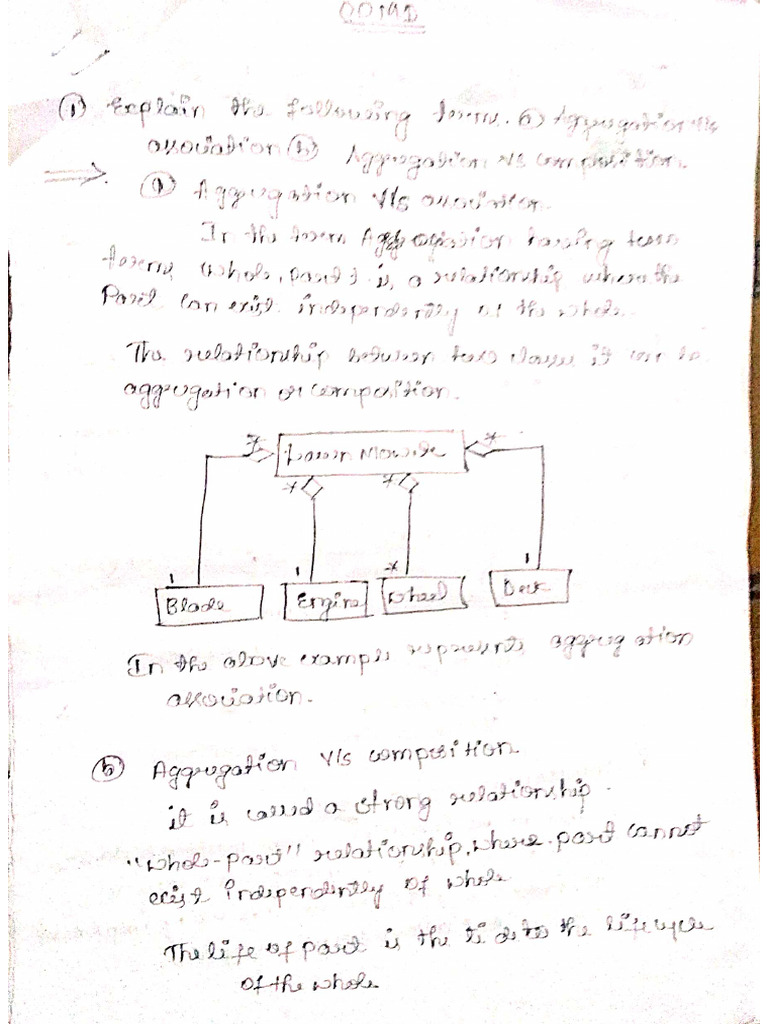 OOMD
① Explain the following terms. ⓐ Aggregation v/s
association ⓑ Aggregation vs composition.
⇒ ⓐ Aggregation v/s association.
In the term Aggregation having two
terms whole, part it is a relationship where the
Part can exist independently of the whole.
The relationship between two classes it can be
aggregation or composition.
* Lawn Mower *
* *
1 1 * 1
Blade Engine Wheel Deck
In the above example represents aggregation
association.
ⓑ Aggregation v/s composition.
it is called a strong relationship.
"whole-part" relationship, where part cannot
exist independently of whole
The life of part is the ti to the lifecycle
of the whole